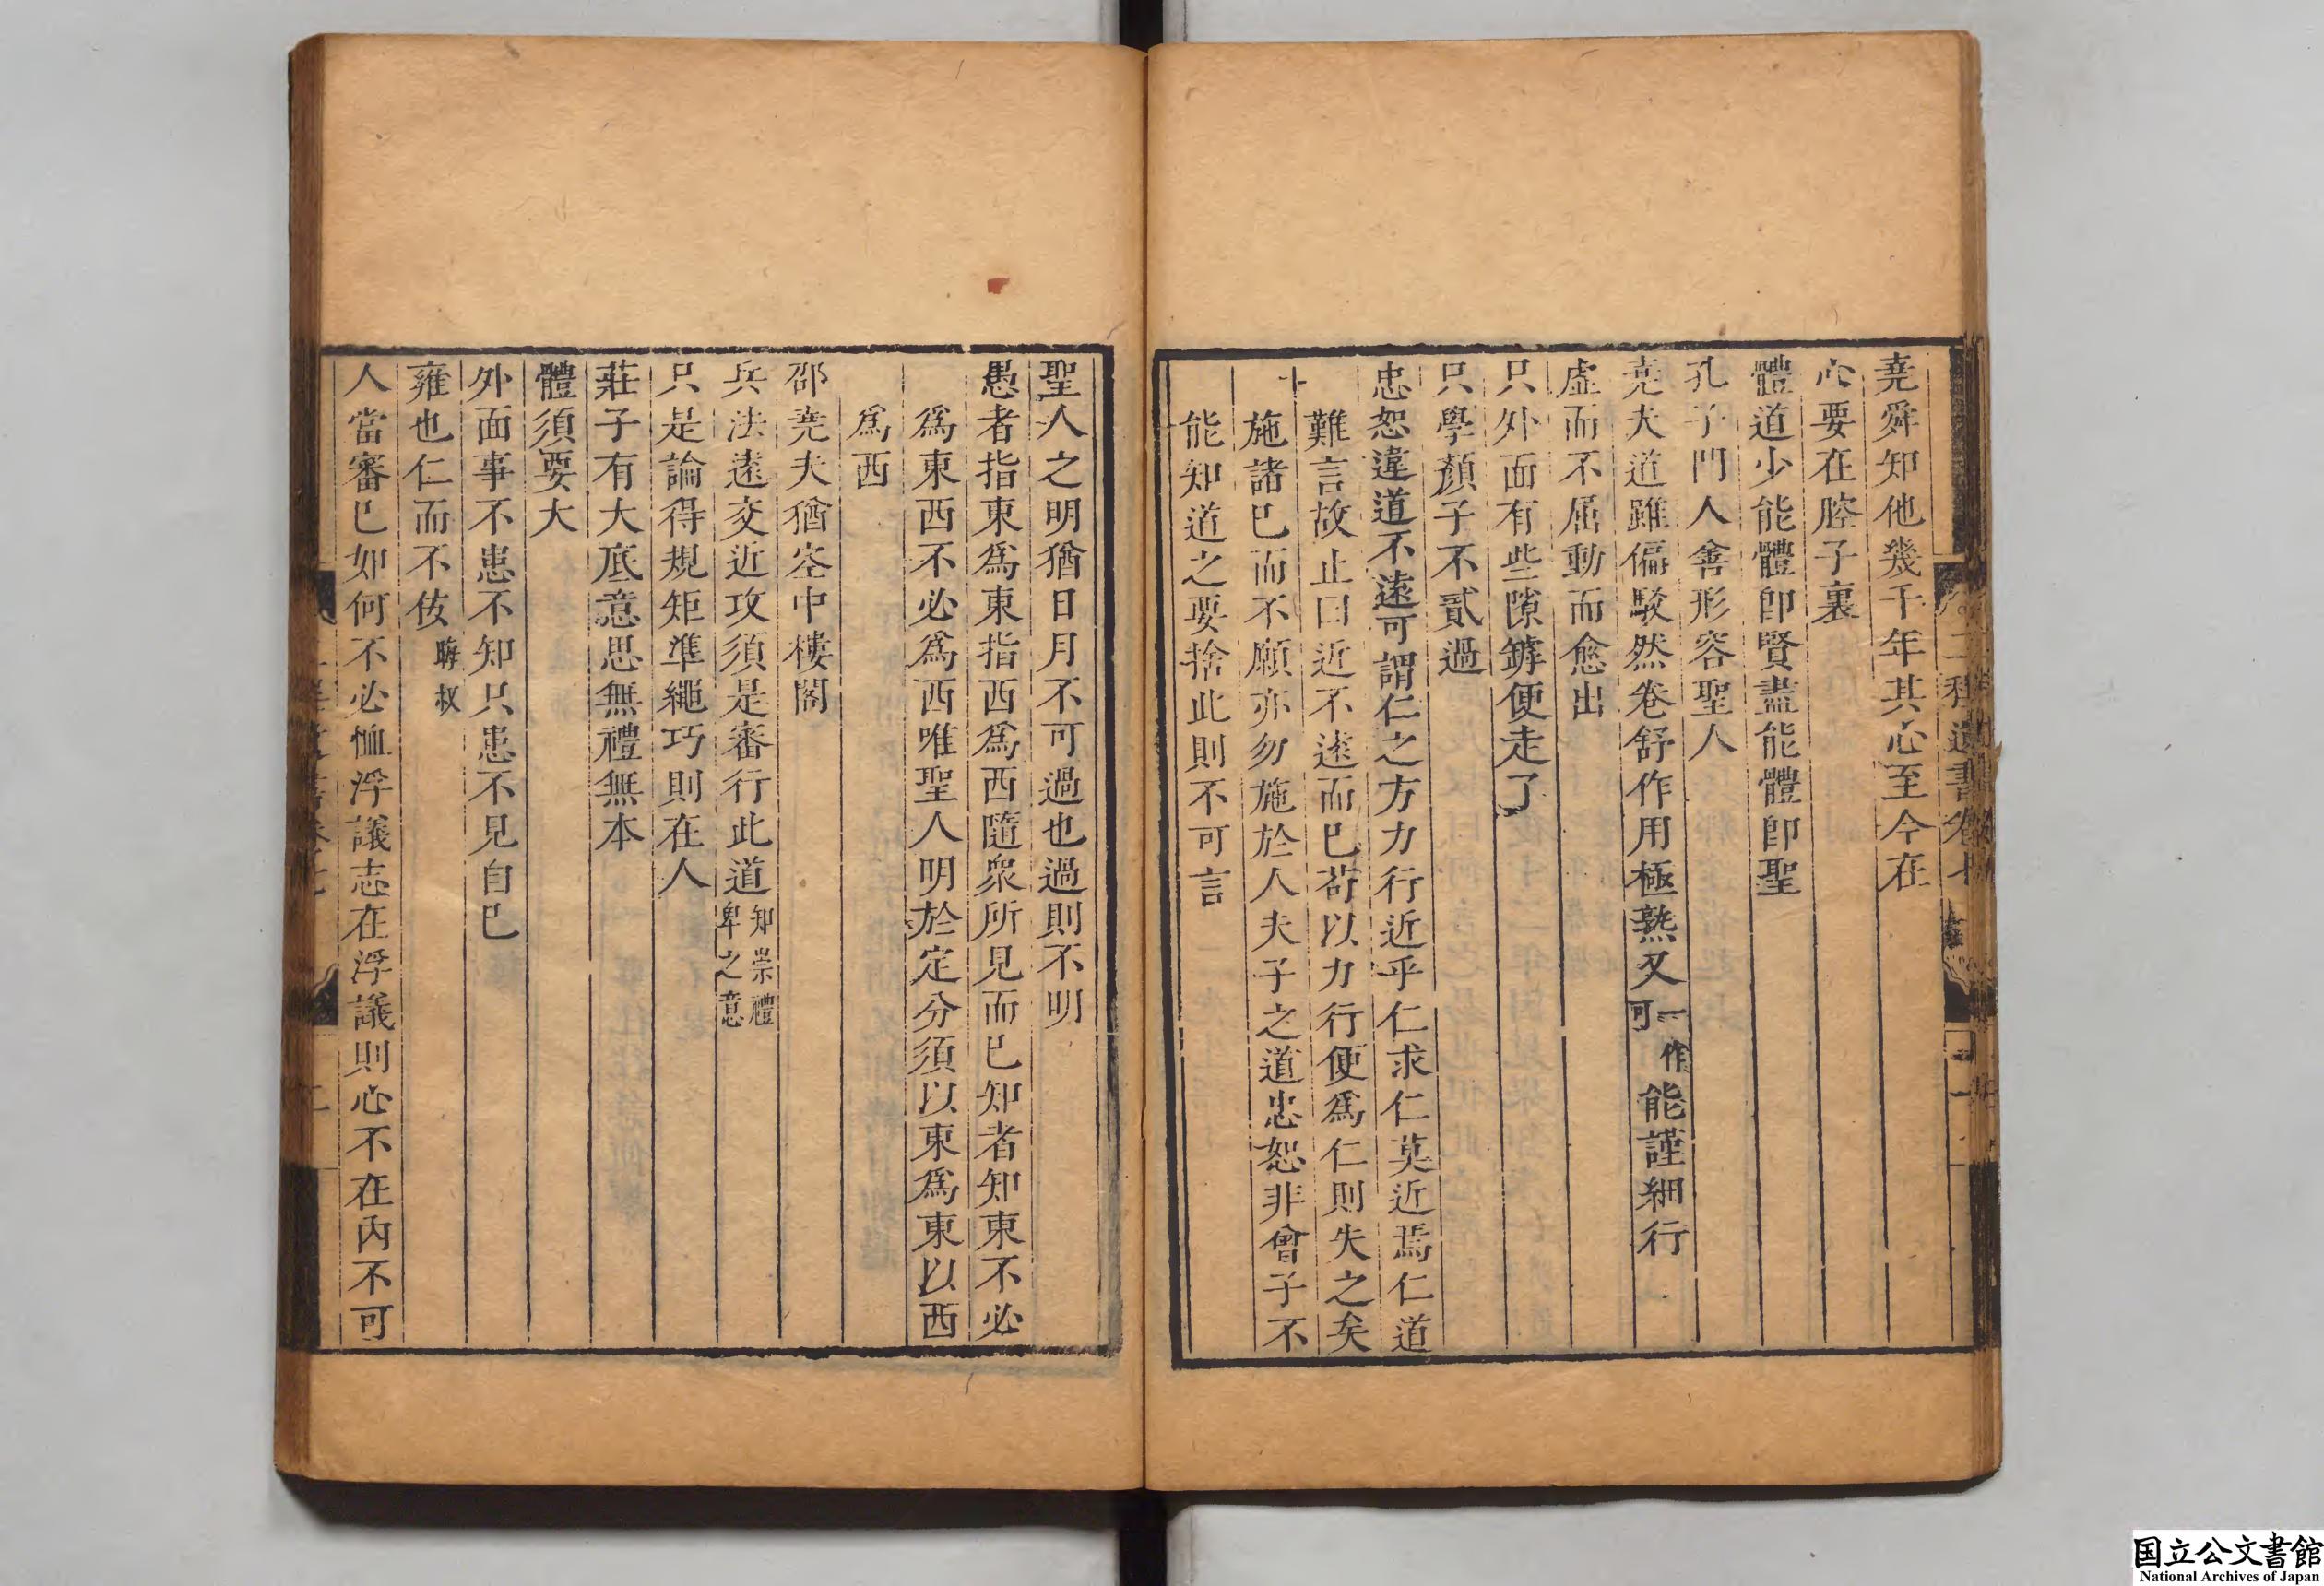 堯舜知他幾千年其心至今在
心要在腔子裏
體道少能體即賢盡能體即聖
孔子門人善形容聖人
堯夫道雖偏駁然卷舒作用極熟又一作可能謹細行
虛而不屈動而愈出
只外面有些隙罅便走了
只學顏子不貳過
忠恕違道不遠可謂仁之方力行近乎仁求仁莫近焉仁道
難言故止曰近不遠而已苟以力行便爲仁則失之矣
施諸己而不願亦勿施於人夫子之道忠恕非曾子不
能知道之要捨此則不可言
聖人之明猶日月不可過也過則不明
愚者指東爲東指西爲西隨衆所見而已知者知東不必
爲東西不必爲西唯聖人明於定分須以東爲東以西
爲西
邵堯夫猶空中樓閣
兵法遠交近攻須是審行此道知崇禮卑之意
只是論得規矩準繩巧則在人
莊子有大底意思無禮無本
體須要大
外面事不患不知只患不見自己
雍也仁而不佞晦叔
人當審己如何不必恤浮議志在浮議則心不在內不可
二程遺書卷七
国立公文書館
National Archives of Japan